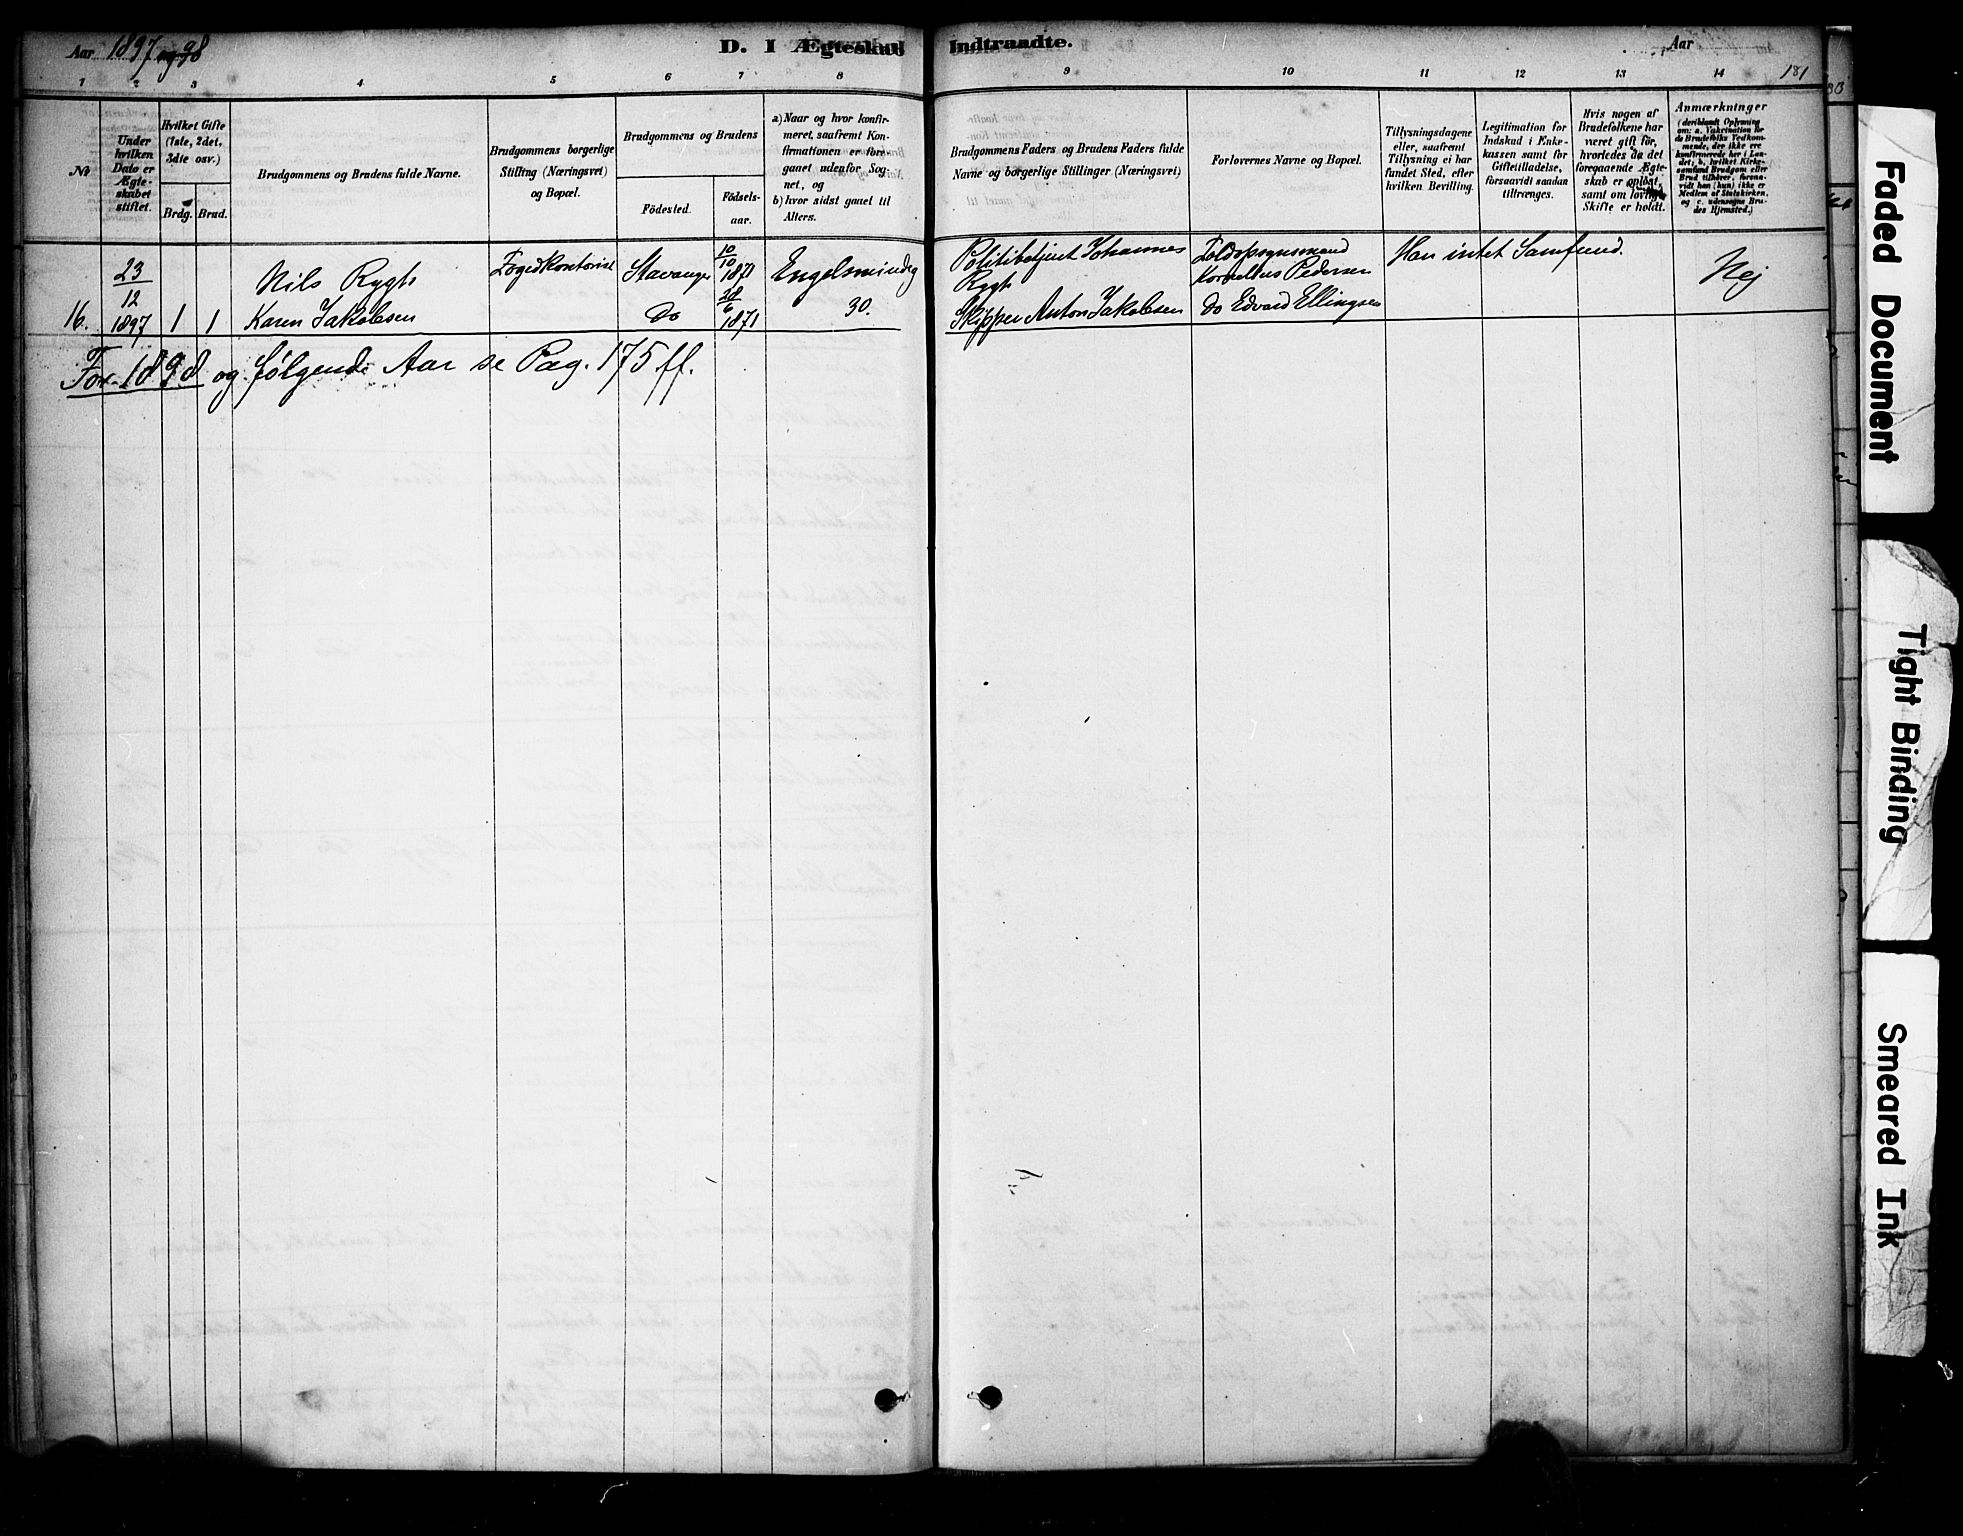 Aar 1897 og 98
D. I Ægteskab Indtraadte.
Aar
181
1 2 3 4 5 6 7 8 9 10 11 12 13 14
No
Under hvilken Dato er Ægteskabet stiftet.
Hvilket Gifte (1ste, 2det, 3die osv.)
Brdg. Brud.
Brudgommens og Brudens fulde Navne.
Brudgommens borgerlige Stilling (Næringsvei) og Bopæl.
Brudgommens og Brudens
Födested.
Födselsaar.
a) Naar og hvor konfirmeret, saafremt Konfirmationen er foregaaet udenfor Sognet, og
b) hvor sidst gaaet til Alters.
Brudgommens Faders og Brudens Faders fulde Navne og borgerlige Stillinger (Næringsvei)
Forlovernes Navne og Bopæl.
Tillysningsdagene eller, saafremt Tillysning ei har fundet Sted, efter hvilken Bevilling.
Legitimation for Indskud i Enkekassen samt for Giftetilladelse, forsaavidt saadan tiltrænges.
Hvis nogen af Brudefolkene har været gift før, hvorledes da det foregaaende Ægteskab er opløst, samt om lovligt Skifte er holdt.
Anmærkninger (deriblandt Oplysning om: a. Vakcination for de Brudefolks Vedkommende, der ikke ere konfirmerede her i Landet; b. hvilket Kirkesamfund Brudgom eller Brud tilhører, forsaavidt han (hun) ikke er Medlem af Statskirken, og c. udensogns Brudes Hjemsted.)
16.
23/12 1897
1 1
Nils Rygh
Karen Jakobsen
Fogedkontorist
Stavanger
Do
10/10 1870
28/6 1871
Engelsmindeg 30.
Politibetjent Johannes Rygh
Skipper Anton Jakobsen
Toldopsynsmand Kornelius Pedersen
Do Edvard Ellingsen
Han intet Samfund.
Nej
For 1898 og følgende Aar se Pag. 175 ff.
Faded Document
Tight Binding
Smeared Ink